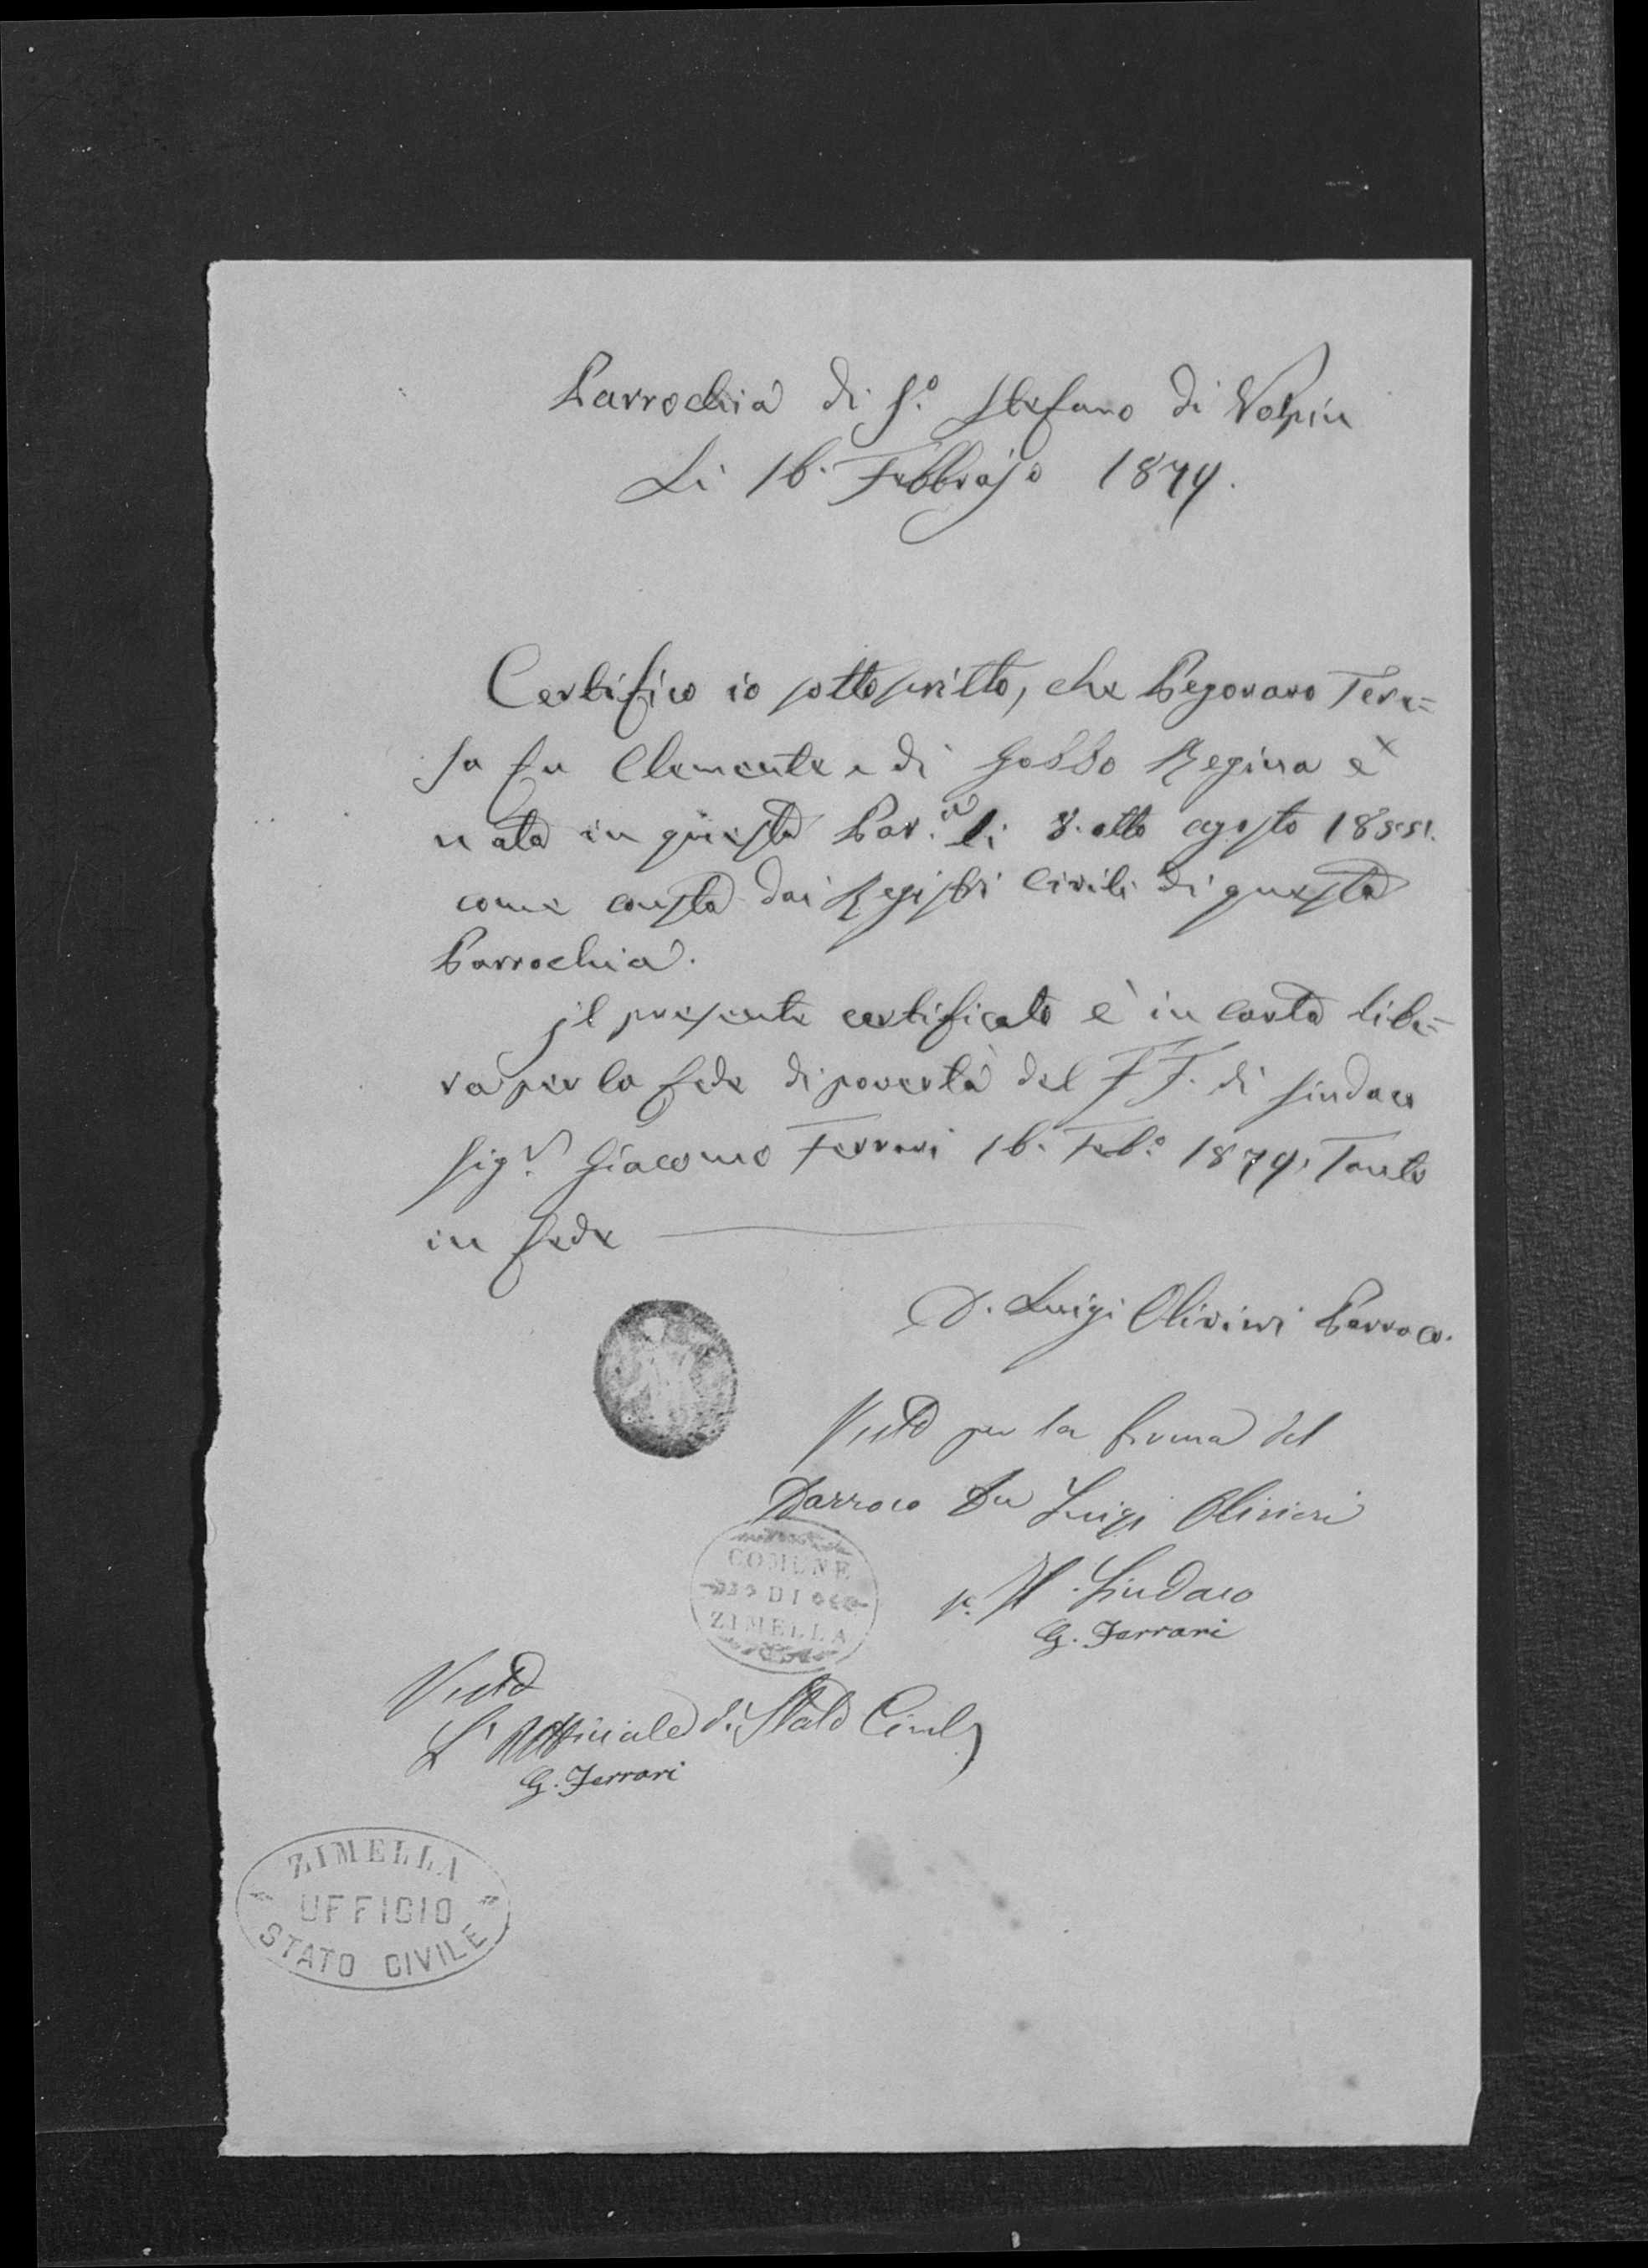 Parrochia di S.º Stefano di Volpin
Li 16. Febbrajo 1879.
Certifico io sottoscritto, che Pegoraro Tere=
sa fu Clemente e di Gobbo Regina è
nata in questa Par.ª li 8. otto agosto 1855.
come consta dai Registri Civili di questa
Parrochia.
Jl presente certificato è in carta libe=
ra per la fede di povertà del FF. di Sindaco
Sigr. Giacomo Ferrari 16. Feb.º 1879. Tanto
in fede
D. Luigi Olivieri Parroco.
Visto per la firma del
Parroco Dn Luigi Olivieri
COMUNE
DI
ZIMELLA
Sindaco
G. Ferrari
Visto
L'Uffiziale di Stato Civile
G. Ferrari
ZIMELLA
UFFICIO
STATO CIVILE